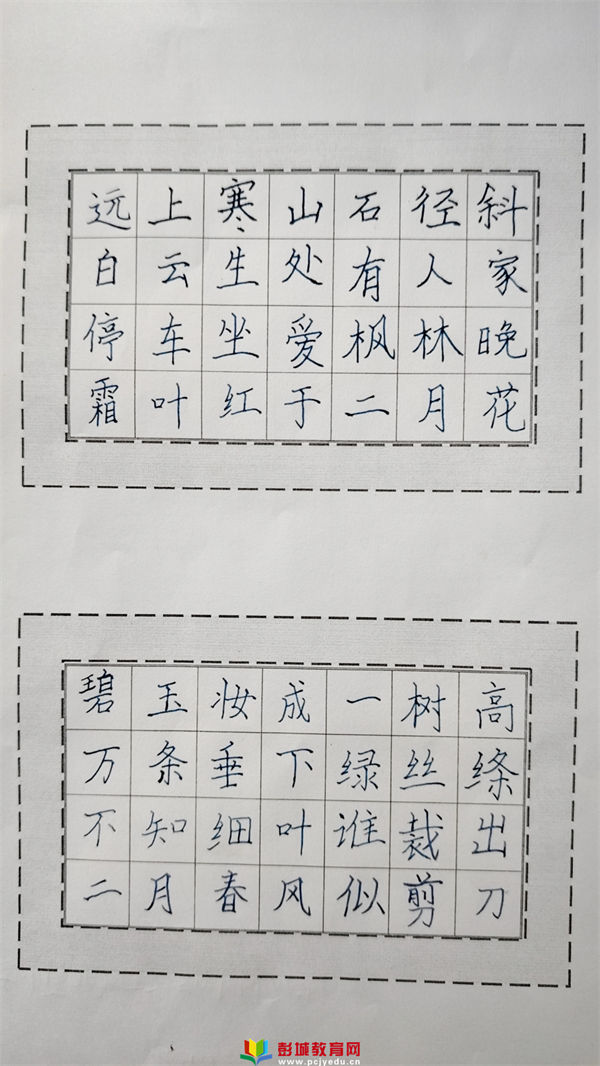 远上寒山石径斜
白云生处有人家
停车坐爱枫林晚
霜叶红于二月花
碧玉妆成一树高
万条垂下绿丝绦
不知细叶谁裁出
二月春风似剪刀
彭城教育网
www.pcjyedu.cn